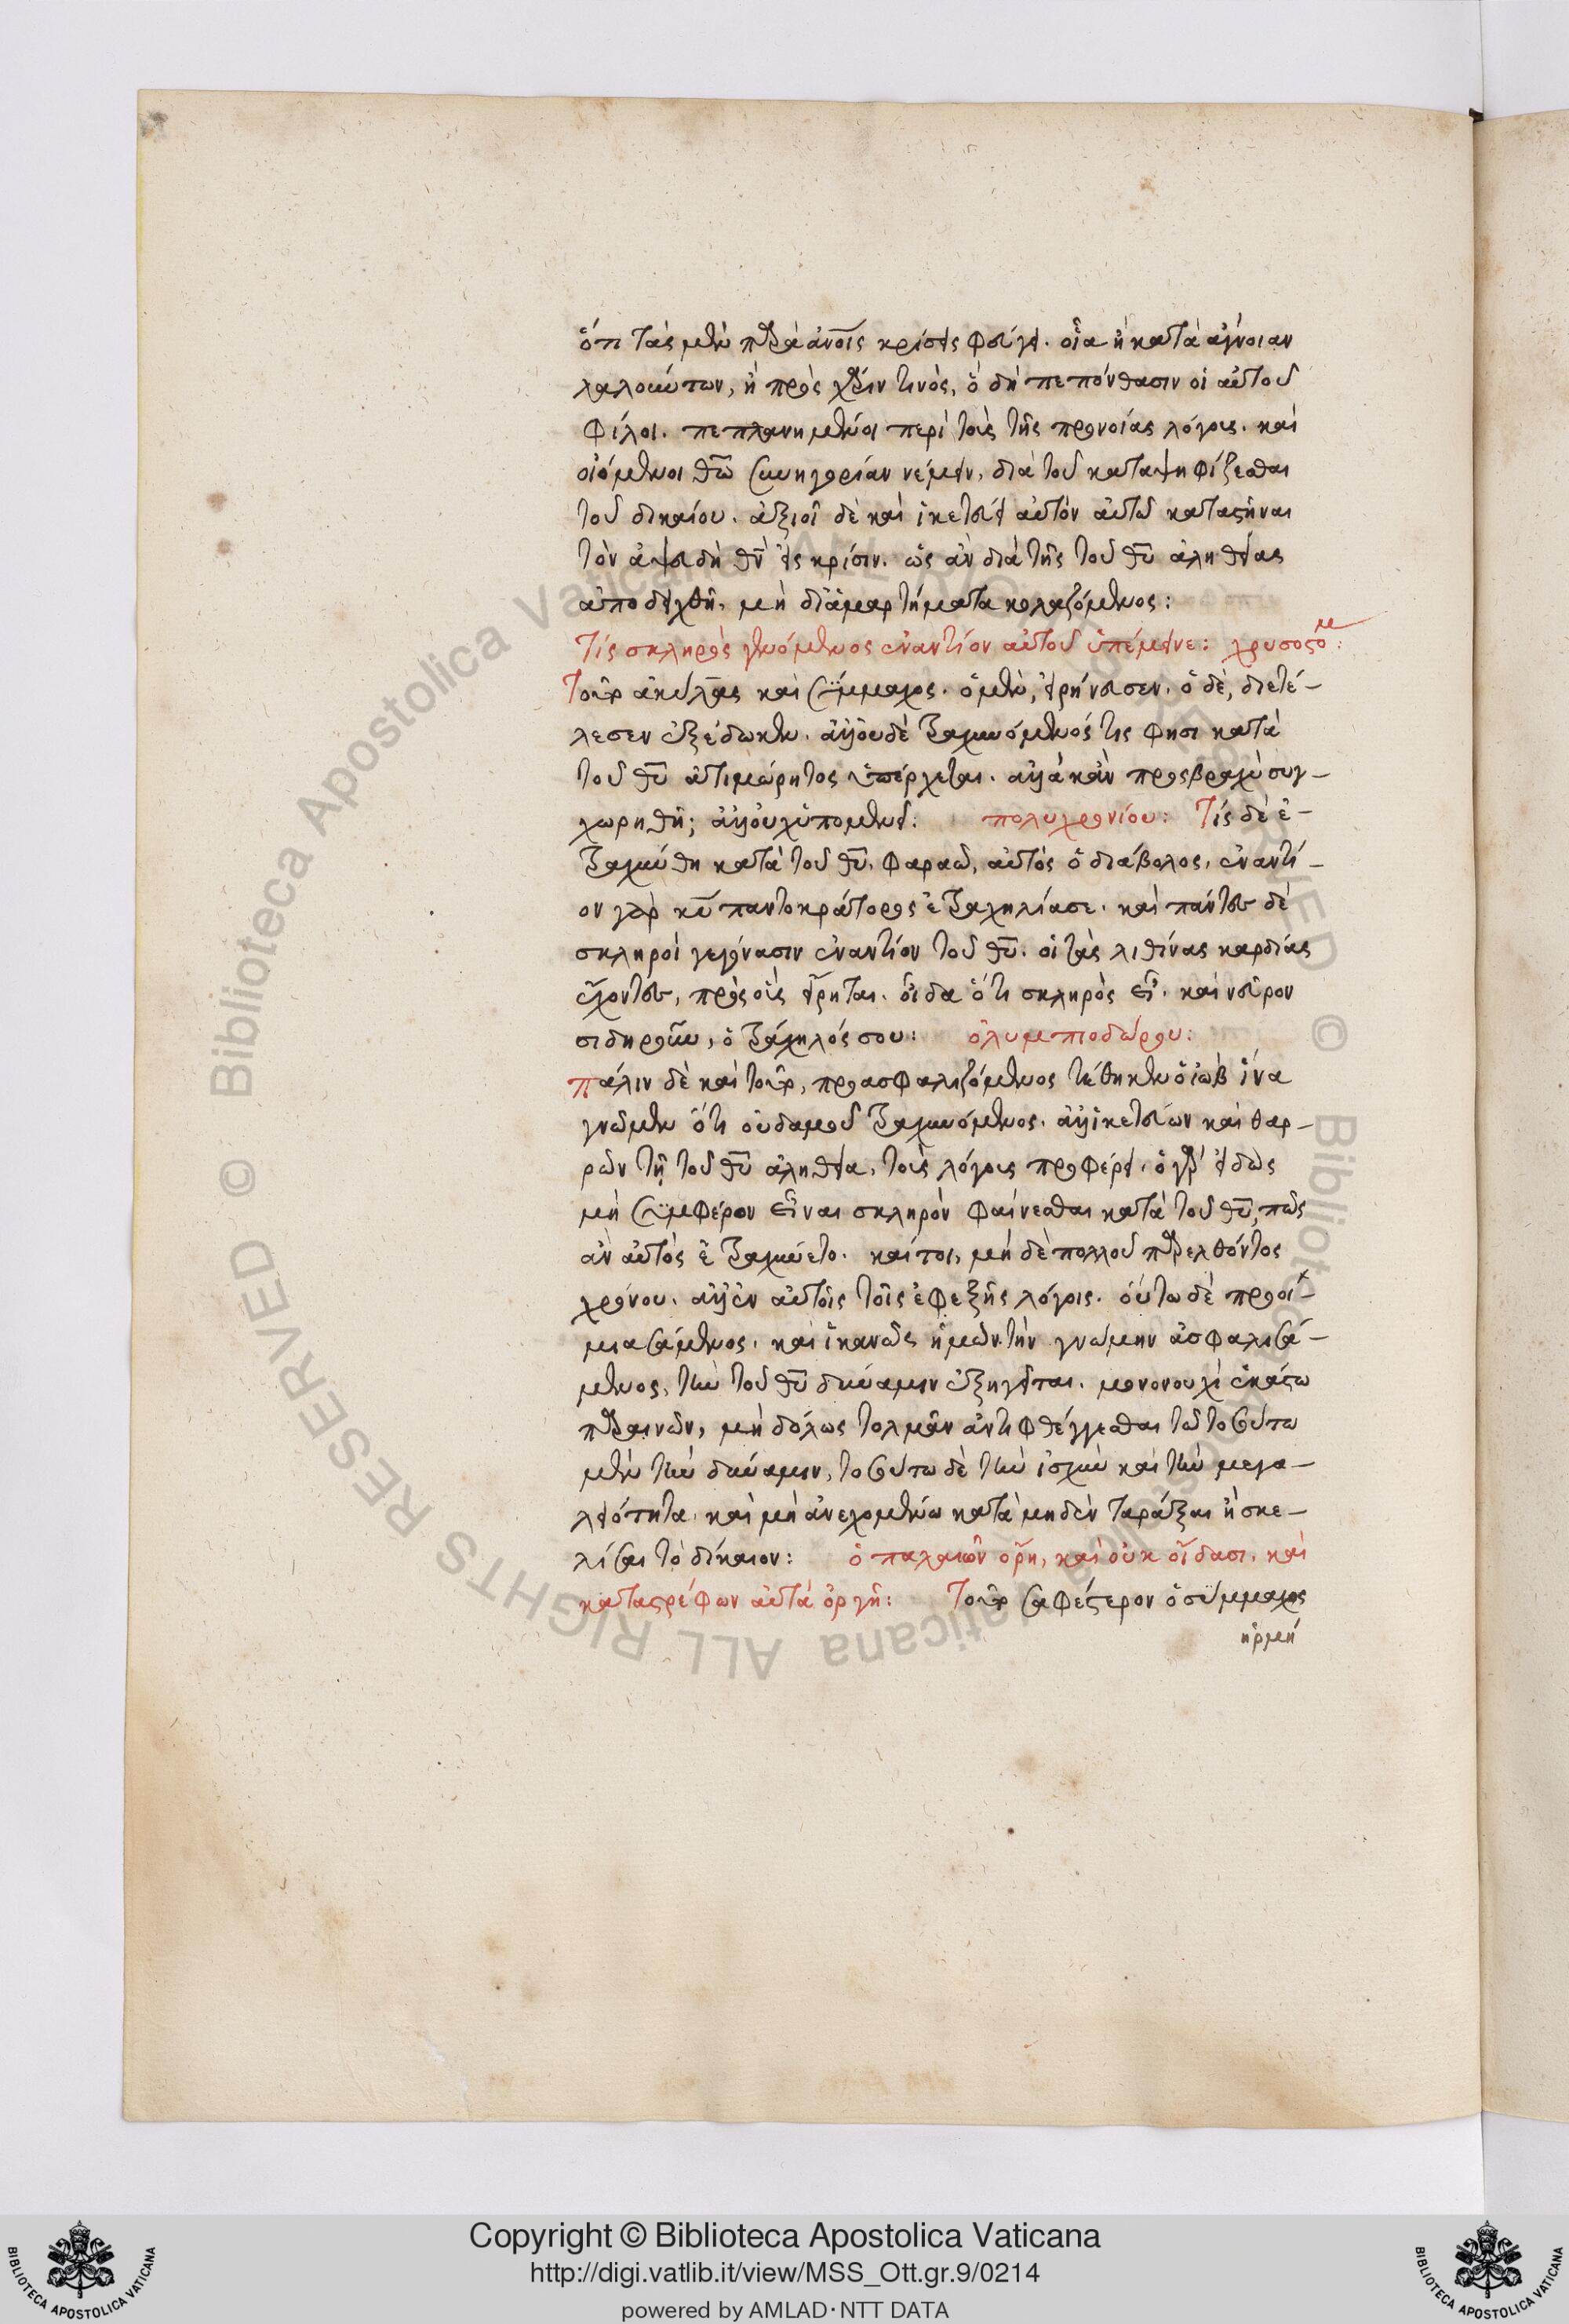 ὅτι τὰς μὲν παρὰ ἀνοις κρίσεις φεύγει. οἷα ἢ κατὰ ἄγνοιαν
λαλούντων, ἢ πρὸς χάριν τινὸς, ὃ δὴ πεπόνθασιν οἱ αὐτοῦ
φίλοι. πεπλανημένοι περὶ τοὺς τῆς προνοίας λόγους. καὶ
οἰόμενοι θῶ συνηγορίαν νέμειν, διὰ τοῦ καταψηφίζεσθαι
τοῦ δικαίου. ἀξιοῖ δὲ καὶ ἱκετεύει αὐτὸν αὐτῶ καταστῆναι
τὸν ἀψευδῆ θν εἰς κρίσιν. ὡς ἂν διὰ τῆς τοῦ θυ ἀληθείας
ἀποδειχθῆ, μὴ δι ἁμαρτήματα κολαζόμενος:
Τίς σκληρὸς γενόμενος ἐναντίον αὐτοῦ ὑπέμεινε: χρυσοστομ:
Τοῦτο ἀκύλας καὶ σύμμαχος. ὁ μὲν, εἰρήνευσεν. ὁ δὲ, διετέ-
λεσεν ἐξέδωκεν. ἀλλ οὐδὲ θρασυνόμενός τις φησι κατὰ
τοῦ θυ ἀτιμώρητος ὑπέρχεται. ἀλλὰ κἂν πρὸς βραχὺ συγ-
χωρηθῆ; ἀλλ οὐχ ὑπομενεῖ: πολυχρονίου: Τίς δὲ ἐ-
θρασύνθη κατὰ τοῦ θυ, φαραὼ, αὐτὸς ὁ διάβολος, ἐναντί-
ον γὰρ κυ παντοκράτορος ἐτραχηλίασε. καὶ πάντες δὲ
σκληροὶ γεγόνασιν ἐναντίον τοῦ θυ. οἱ τὰς λιθίνας καρδίας
ἔχοντες, πρὸς οὓς εἴρηται. οἶδα ὅτι σκληρὸς εἶ. καὶ νεῦρον
σιδηροῦν, ὁ τράχηλός σου: ὀλυμπιοδώρου:
Πάλιν δὲ καὶ τοῦτο, προασφαλιζόμενος τέθηκεν ὁ ἰὼβ ἵνα
γνῶμεν ὅτι οὐδαμοῦ θρασυνόμενος. ἀλλ ἱκετεύων καὶ θαρ-
ρῶν τῆ τοῦ θυ ἀληθεία, τοὺς λόγους προφέρει. ὁ γὰρ εἰδὼς
μὴ συμφέρον εἶναι σκληρὸν φαίνεσθαι κατὰ τοῦ θυ, πῶς
ἂν αὐτὸς ἐθρασύνετο. καίτοι, μὴ δὲ πολλοῦ παρελθόντος
χρόνου. ἀλλ ἐν αὐτοῖς τοῖς ἐφεξῆς λόγοις. οὕτω δὲ προοι-
μιασάμενος. καὶ ἱκανῶς ἡμῶν τὴν γνώμην ἀσφαλισά-
μενος, τὴν τοῦ θυ δύναμιν ἐξηγεῖται. μονονουχὶ ἑκάστω
παραινῶν, μὴ δόλως τολμᾶν ἀντιφθέγγεσθαι τῶ τοσούτω
μὲν τὴν δύναμιν, τοσούτω δὲ τὴν ἰσχὺν καὶ τὴν μεγα-
λειότητα. καὶ μὴ ἀνεχομένω κατὰ μηδὲν ταράξαι ἢ σκε-
λίσαι τὸ δίκαιον: ὁ παλαιῶν ὄρη, καὶ οὐκ οἴδασι. καὶ
καταστρέφων αὐτὰ ὀργῆ: Τοῦτο σαφέστερον ὁ σύμμαχος
ἡρμή